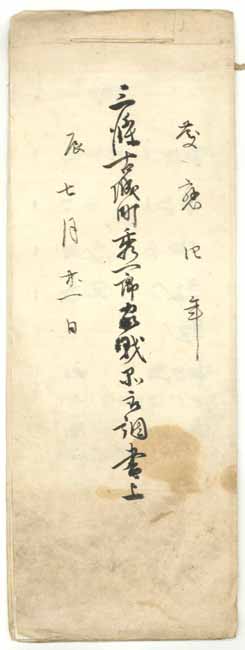 慶應四年
三條古城町秀一郎家財取調書上
辰七月廿一日